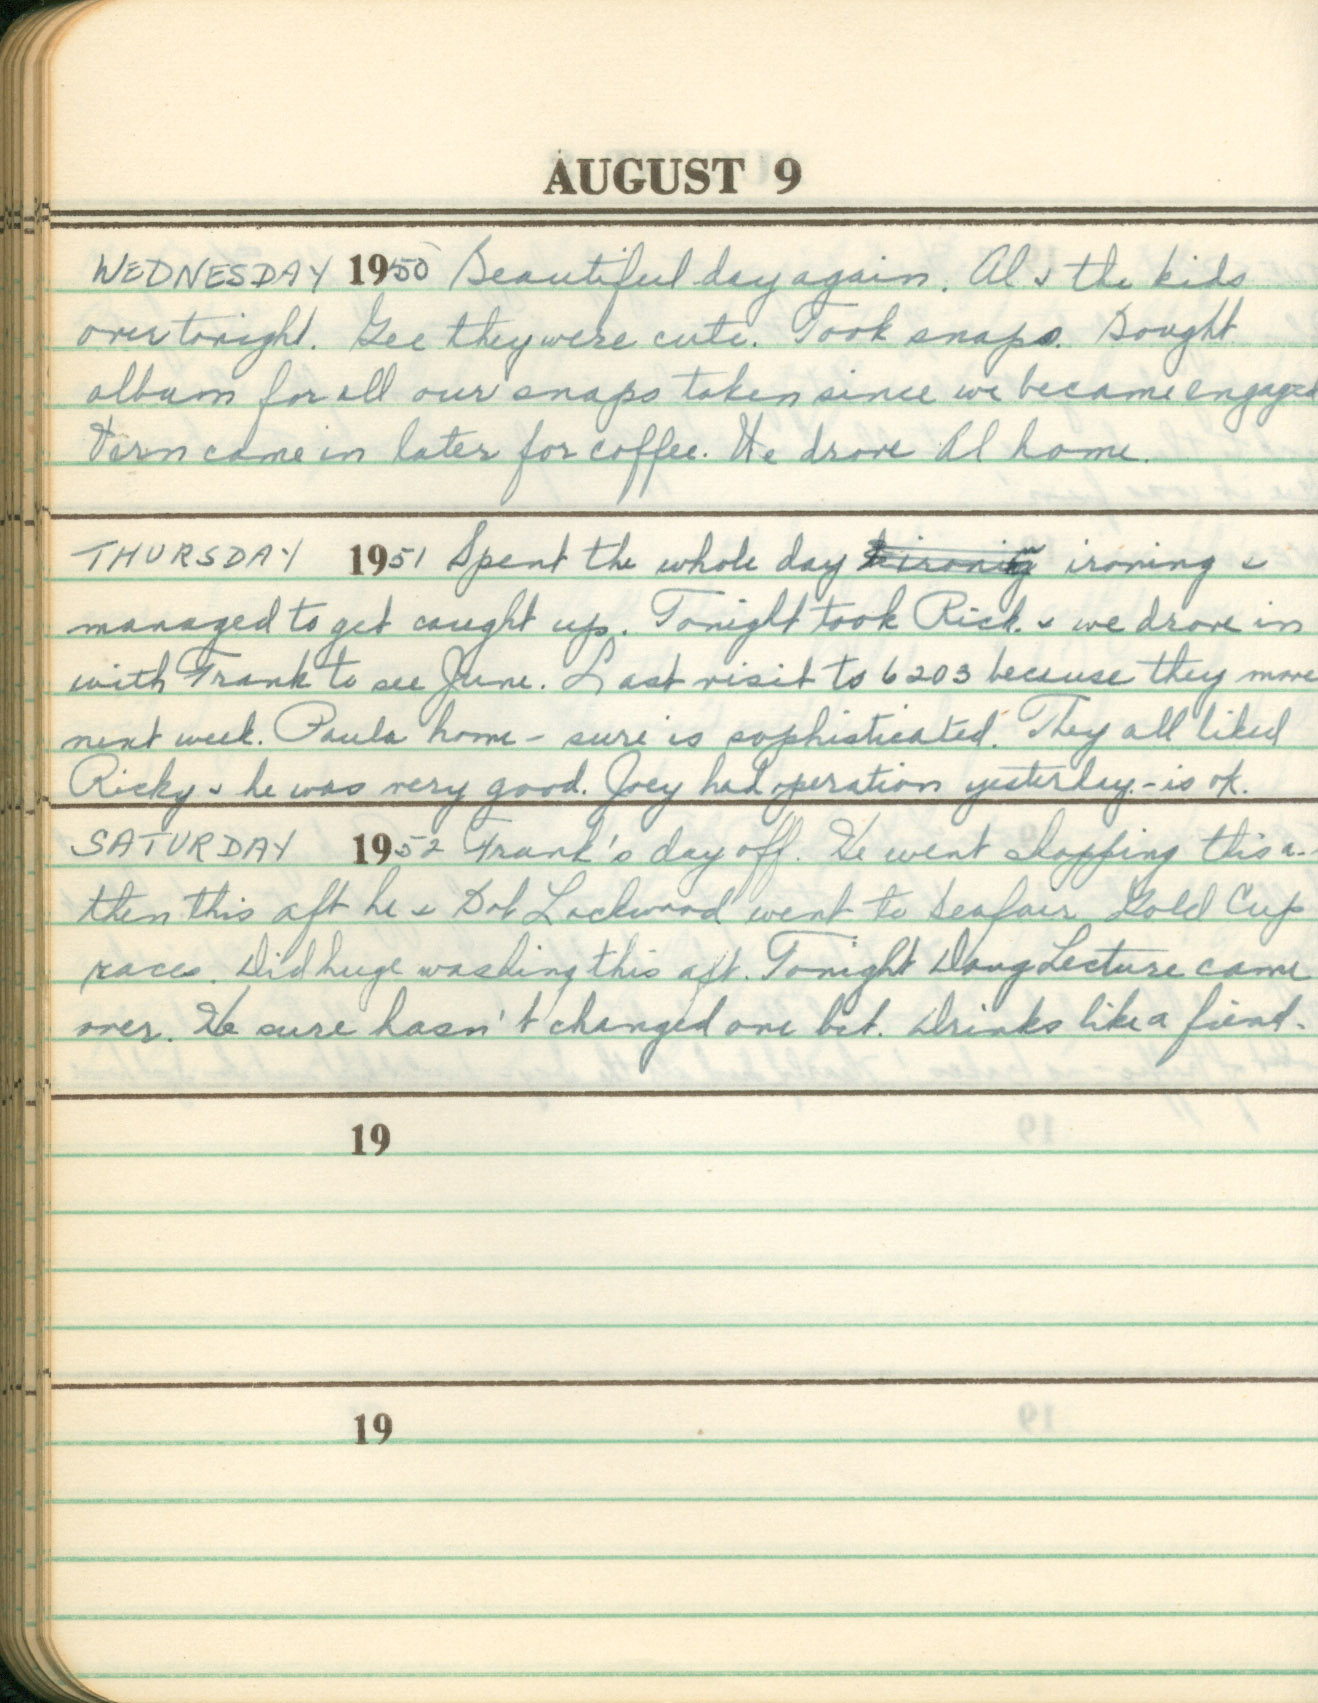 AUGUST 9
WEDNESDAY 1950 Beautiful day again. Al & the kids
over tonight. Gee they were cute. Took snaps. Bought
album for all our snaps taken since we became engaged
Vern came in later for coffee. He drove Al home.
THURSDAY 1951 Spent the whole day ironing &
managed to get caught up. Tonight took Rick. & we drove in
with Frank to see June. Last visit to 6203 because they move
next week. Paula home - sure is sophisticated. They all liked
Ricky & he was very good. Joey had operation yesterday - is ok.
SATURDAY 1952 Frank's day off. We went shopping this a.
then this aft he & Bob Lockwood went to Seafair Gold Cup
races. Did huge washing this aft. Tonight Doug Lecture came
over. He sure hasn't changed one bit. Drinks like a fiend.
19
19